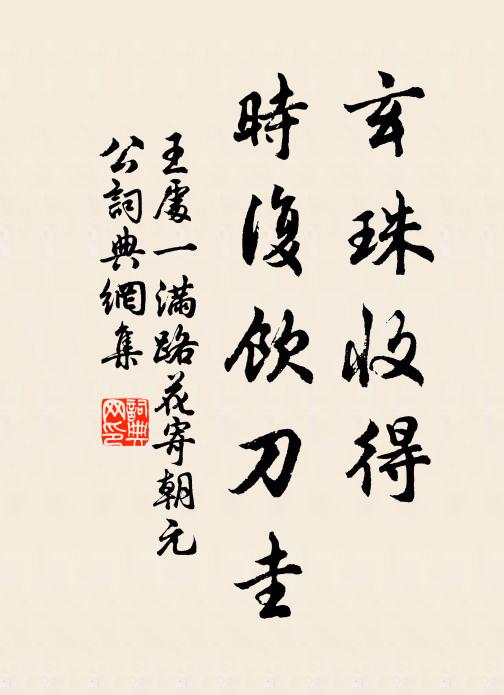 玄珠收得
時復飲刀圭
王處一滿路花寄朝元
公詞典網集
詞典
网印